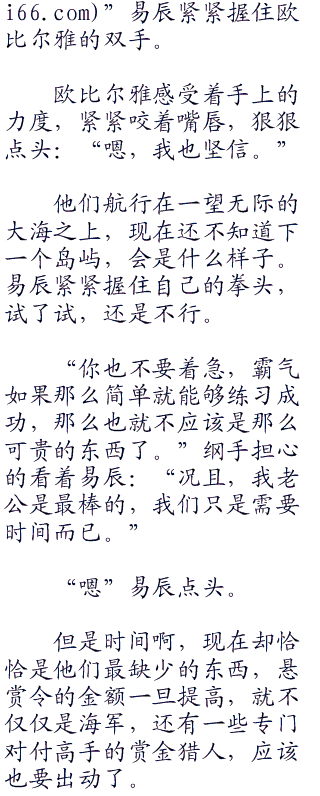 i66.com)” 易辰紧紧握住欧
比尔雅的双手。
欧比尔雅感受着手上的
力度，紧紧咬着嘴唇，狠狠
点头：“嗯，我也坚信。”
他们航行在一望无际的
大海之上，现在还不知道下
一个岛屿，会是什么样子。
易辰紧紧握住自己的拳头，
试了试，还是不行。
“你也不要着急，霸气
如果那么简单就能够练习成
功，那么也就不应该是那么
可贵的东西了。”纲手担心
的看着易辰：“况且，我老
公是最棒的，我们只是需要
时间而已。”
“嗯”易辰点头。
但是时间啊，现在却恰
恰是他们最缺少的东西，悬
赏令的金额一旦提高，就不
仅仅是海军，还有一些专门
对付高手的赏金猎人，应该
也要出动了。